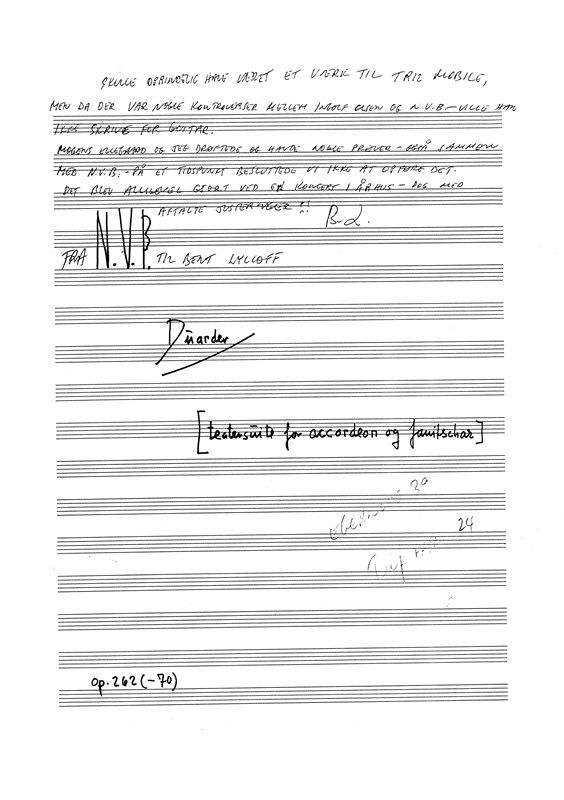 SKULLE OPRINDELIG HAVE VÆRET ET VÆRK TIL TRIO MOBILE,
MEN DA DER VAR NOGLE KONTROVERSER MELLEM INGOLF OLSEN OG N.V.B – VILLE HAN
IKKE SKRIVE FOR GUITAR.
MOGENS ELLEGAARD OG JEG DRØFTEDE OG HAVDE NOGLE PRØVER – OGSÅ SAMMEN
MED N.V.B. – PÅ ET TIDSPUNKT BESLUTTEDE VI IKKE AT OPFØRE DET.
DET BLEV ALLIGEVEL GJORT VED EN KONCERT I ÅRHUS – DOG MED
AFTALTE JUSTERINGER !!
B.L.
FRA N.V.B. TIL BENT LYLLOFF
Duarder
[teatersuite for accordeon og janitschar]
24
op. 262 (-70)